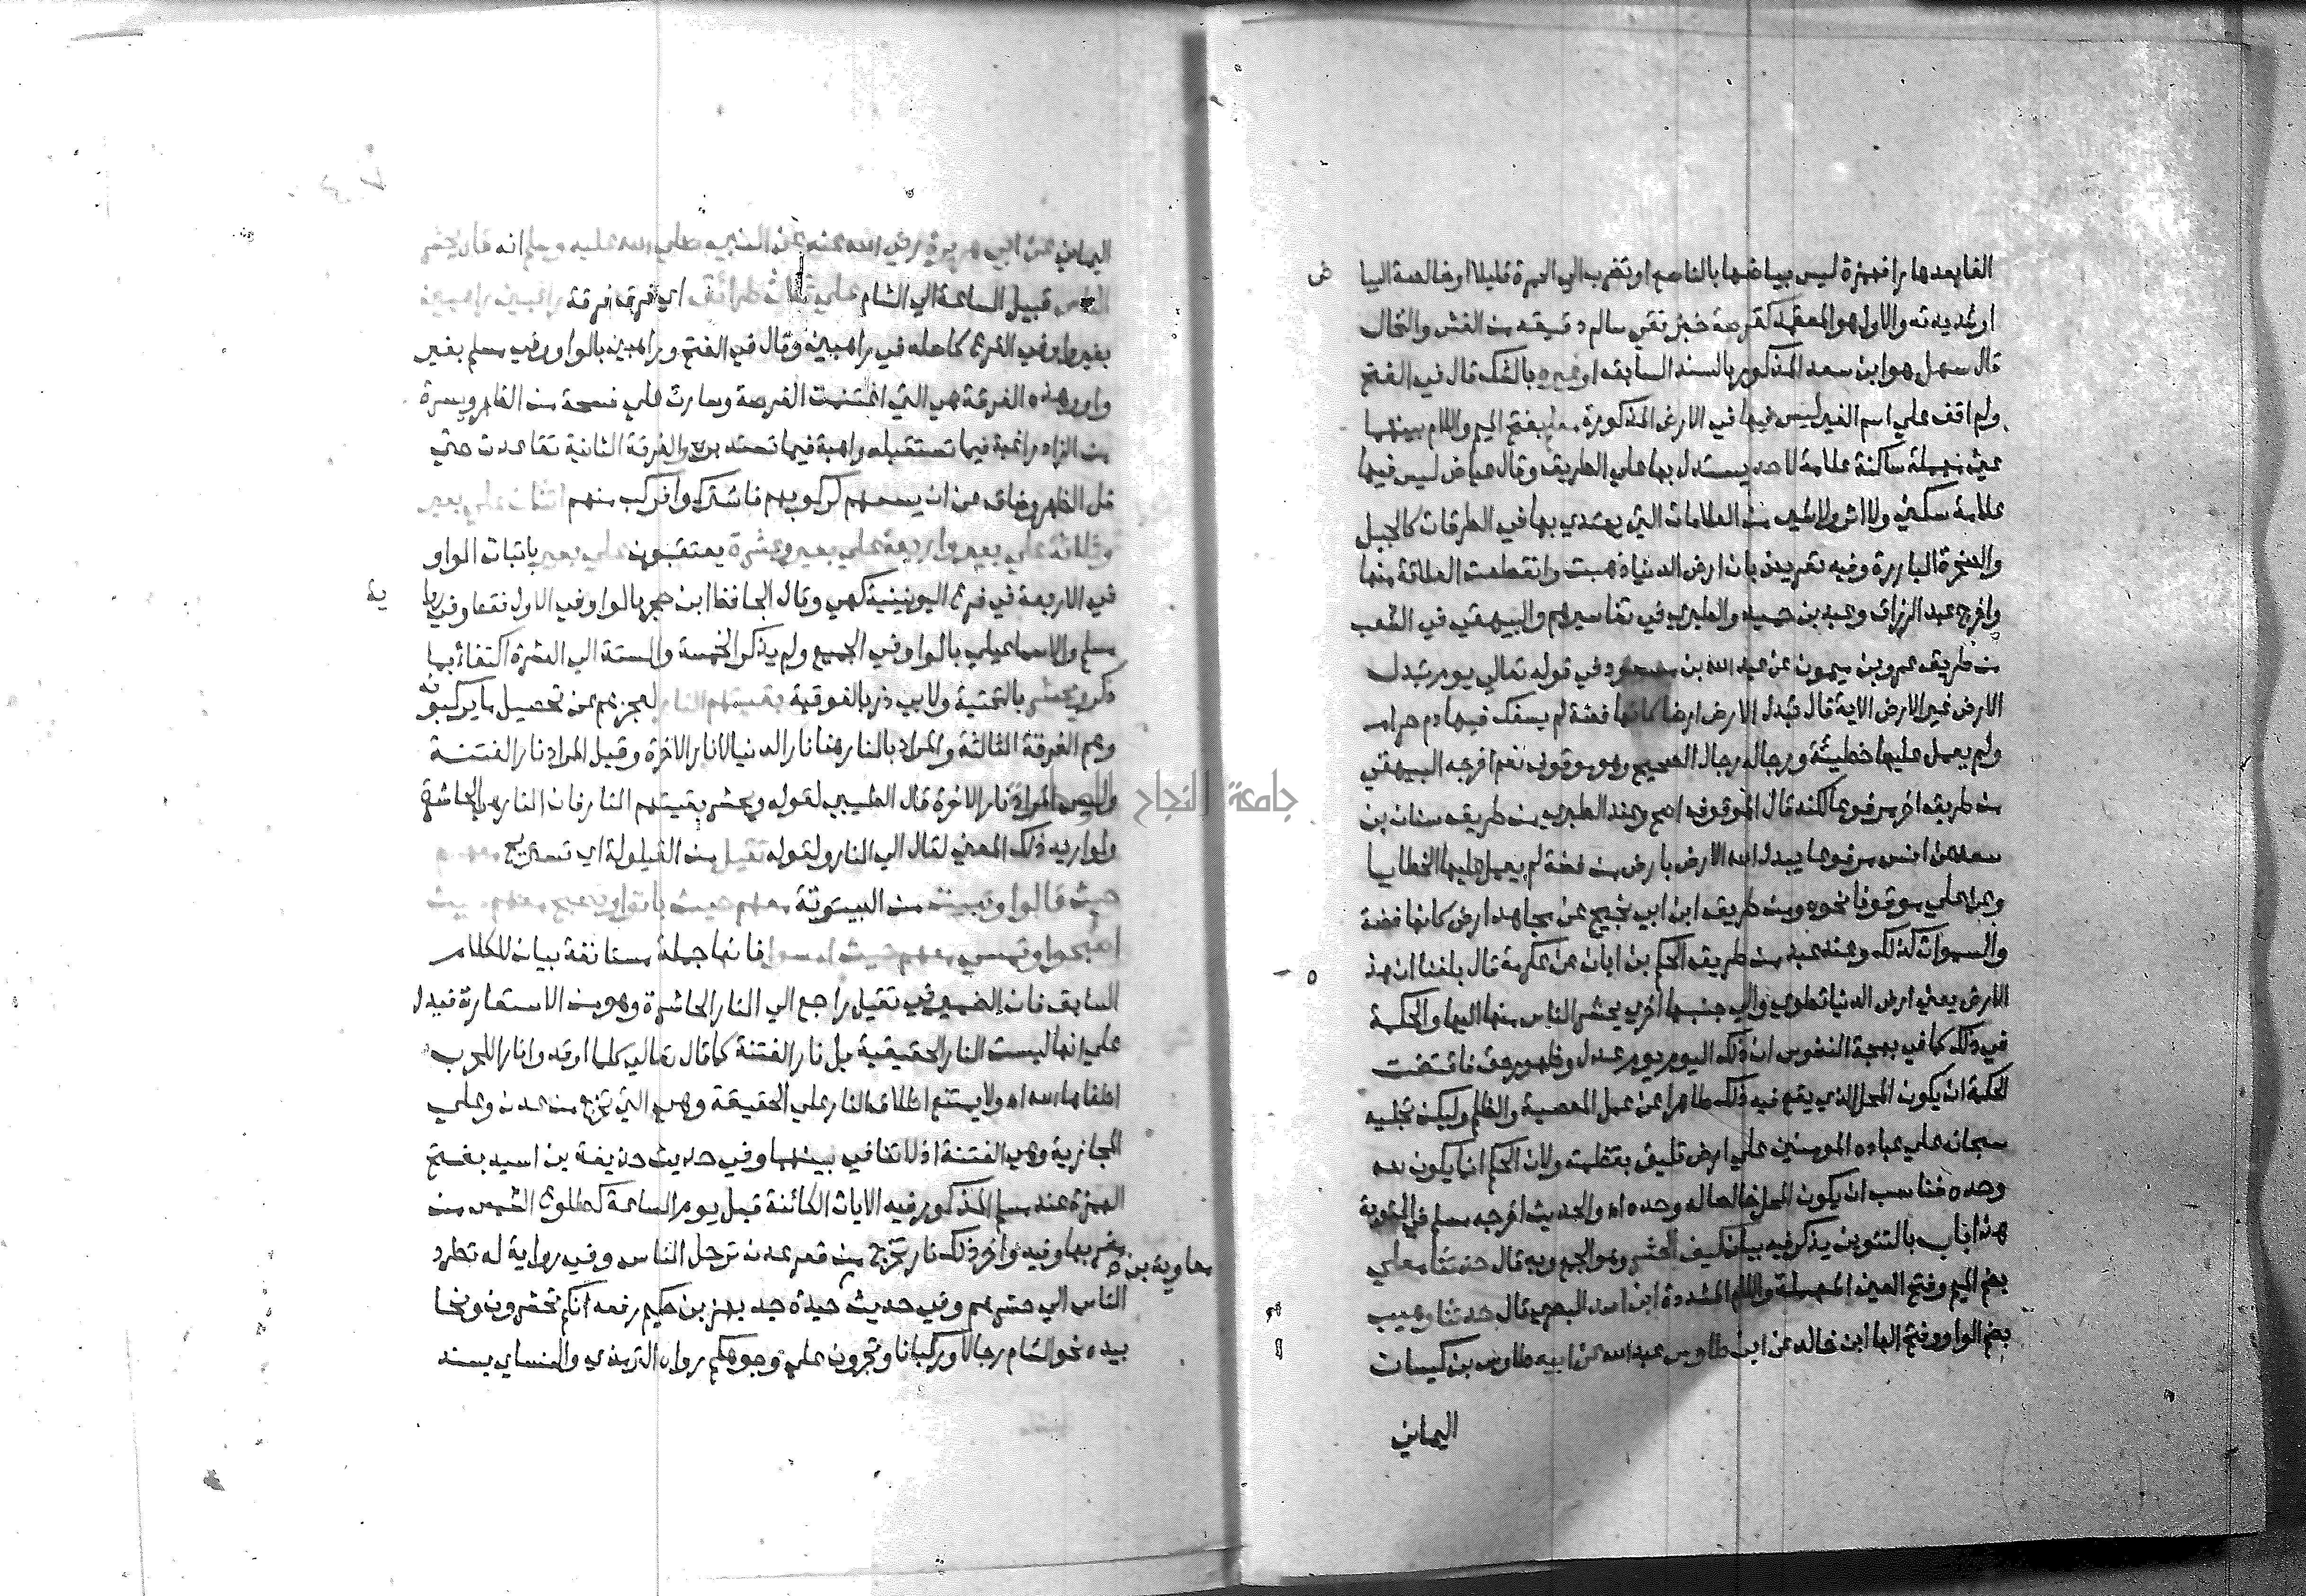 الفا بعدها را فهمزة ليس بياضها بالناصع او تضرب الي الحمرة قليلا او خالصة البيا ض
او شديدته والاول هو المعتمد كقرصة خبز نقي سالم دقيقه من الغش والنخال
قال سهل هو ابن سعد المذكور بالسند السابق او غيره بالشك قال في الفتح
ولم اقف علي اسم الغير ليس فيها في الارض المذكورة معلم بفتح الميم واللام بينهما
عين مهملة ساكنة علامة لاحد يستدل بها علي الطريق وقال عياض ليس فيها
علامة سكني ولا اثر ولا شي من العلامات التي يهتدي بها في الطرقات كالجبل
والصخرة البارزة وفيه تعريض بان ارض الدنيا ذهبت وانقطعت العلاقة منها
واخرج عبد الرزاق وعبد بن حميد والطبري في تفاسيرهم والبيهقي في الشعب
من طريق عمرو بن ميمون عن عبد الله بن مسعود في قوله تعالي يوم تبدل
الارض غير الارض الاية قال تبدل الارض ارضا كانها فضة لم يسفك فيها دم حرام
ولم يعمل عليها خطيئة ورجاله رجال الصحيح وهو موقوف نعم اخرجه البيهقي
من طريق اخر مرفوعا لكنه قال الموقوف اصح وعند الطبري من طريق سنان بن
سعد عن انس مرفوعا يبدل الله الارض بارض من فضة لم يعمل عليها الخطايا
وعن علي موقوفا نحوه ومن طريق ابن ابي نجيح عن مجاهد ارض كانها فضة
والسموات كذلك وعند عبد من طريق الحكم بن ابان عن عكرمة قال بلغنا ان هذ ه
الارض يعني ارض الدنيا تطوي والي جنبها اخري يحشر الناس منها اليها والحكمة
في ذلك كما في بهجة النفوس ان ذلك اليوم يوم عدل وظهور حق فاقتضت
الحكمة ان يكون المحل الذي يقع فيه ذلك طاهرا عن عمل المعصية والظلم وليكن تجليه
سبحانه علي عباده المومنين علي ارض تليق بعظمته ولان الحكم انما يكون لله
وحده فناسب ان يكون المحل خالصا له وحده اه والحديث اخرجه مسلم في التوبة
هذا باب بالتنوين يذكر فيه بيان كيف الحشر وهو الجمع وبه قال حدثنا معلي
بضم الميم وفتح العين المهملة واللام المشددة ابن اسد البصري قال حدثنا وهيب
بضم الواو وفتح الها ابن خالد عن ابن طاوس عبد الله عن ابيه طاوس بن كيسان
اليماني
اليماني عن ابي هريرة رضي الله عنه عن النبي صلي الله عليه وسلم انه قال يحشر
الناس قبيل الساعة الي الشام علي ثلاث طرائق اي فرق فرقة راغبين راهبين
بغير واو في الفرع كاصله في راهبين وقال في الفتح وراهبين بالواو وفي مسلم بغير
واو وهذه الفرقة هي التي اغتنمت الفرصة وسارت علي فسحة من الظهر ويسرة
من الزاد راغبة فيما تستقبله راهبة فيما تستدبره والفرقة الثانية تقاعدت حتي
قل الظهر وضاق عن ان يسعهم لركوبهم فاشتركوا فركب منهم اثنان علي بعير
وثلاثة علي بعير واربعة علي بعير وعشرة يعتقبون علي بعير باثبات الواو
في الاربعة في فرع اليونينية كهي وقال الحافظ ابن حجر بالواو في الاول فقط وفي روا ية
مسلم والاسماعيلي بالواو في الجميع ولم يذكر الخمسة والستة الي العشرة اكتفاء بما
ذكر ويحشر بالتحتية ولابي ذر بالفوقية بقيتهم النار لعجزهم عن تحصيل ما يركبونه
وهم الفرقة الثالثة والمراد بالنار هنا نار الدنيا لا نار الاخرة وقيل المراد نار الفتنة
وليس المراد نار الاخرة قال الطيبي لقوله ويحشر بقيتهم النار فان النار هي الحاشرة
ولو اريد ذلك المعني لقال الي النار ولقوله تقيل من القيلولة اي تستريح معهم
حيث قالوا وتبيت من البيتوتة معهم حيث باتوا وتصبح معهم حيث
اصبحوا وتمسي معهم حيث امسوا فانها جملة مستانفة بيان للكلام
السابق فان الضمير في تقيل راجع الي النار الحاشرة وهو من الاستعارة فيدل
علي انها ليست النار الحقيقية بل نار الفتنة كما قال تعالي كلما اوقدوا نارا للحرب
اطفاها الله اه ولا يمتنع اطلاق النار علي الحقيقة وهي التي تخرج من عدن وعلي
المجازية وهي الفتنة اذ لا تنافي بينهما وفي حديث حذيفة بن اسيد بفتح
الهمزة عند مسلم المذكور فيه الايات الكائنة قبل يوم الساعة كطلوع الشمس من
مغربها وفيه واخر ذلك نار تخرج من قعر عدن ترحل الناس وفي رواية له تطرد
معاوية بن
الناس الي حشرهم وفي حديث حيدة جد بهز بن حكيم رفعه انكم تحشرون ونحا
بيده نحو الشام رجالا وركبانا وتجرون علي وجوهكم رواه الترمذي والنساي بسند
جامعة النجاح